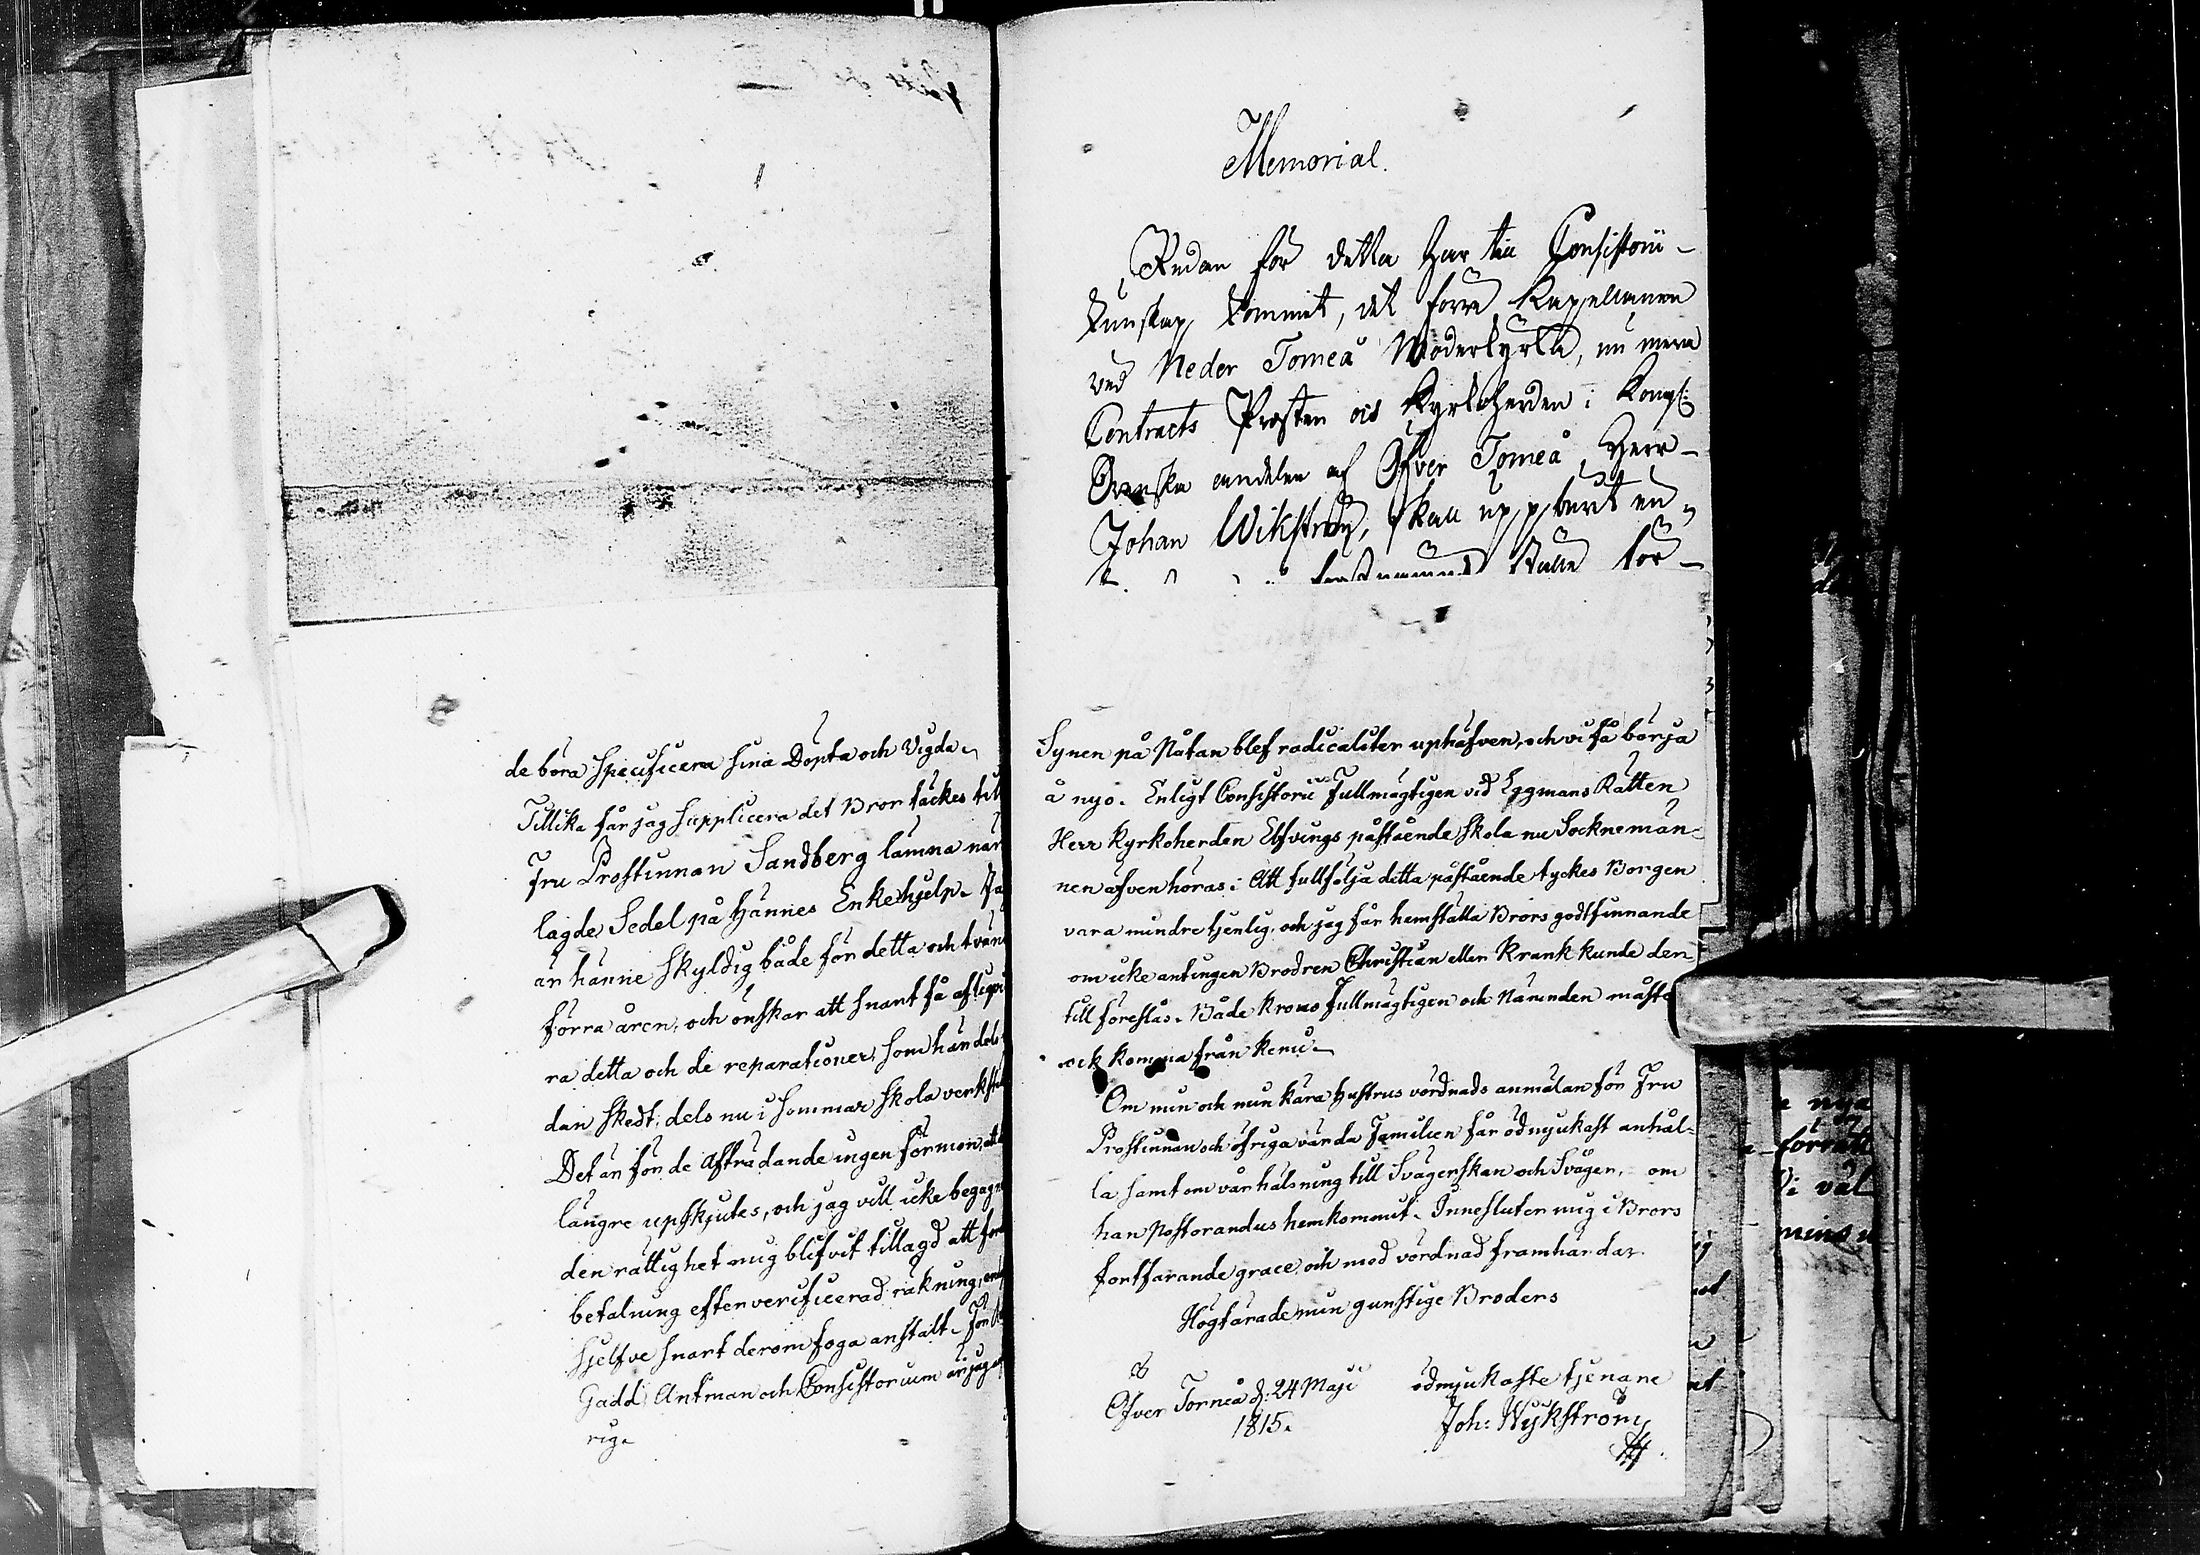 de böra specificera sina Döpta och Vigda.
Tillika får jag supplicera det Bror täckes till
Fru Prostinnan Sandberg lämna när
lagde Sedel på Hännes Enkehjelp.
är hänne skyldig både för detta och tvän
förra åren, och önskar att snart få afliqvi
ra detta och de reparationer, som hän dels
dan skedt, dels nu i sommar skola verkst
Det är för de afträdande ingen förmon, att
längre upskjutes, och jag vill icke begagn
den rättighet mig blifvit tillagd att
betalning efter verificerad räkning,
sjelfve snart derom foga anstalt. För
Gadd, Antman och Consistorium är jag
rig.
Memorial.
Redan för detta har till Consistorii
kunskap kommit, det förre Kappellanen
ved Neder Torneå Moderkyrka, nu mera
Contracts Prosten och Kyrkoherden i Kongl:
Svenska andelen af Öfver Torneå, Herr
Johan Wikström, skall uppburit en
förstnämnd ställe för
Synen på Nåtan blef radicaliter uphäfven, och vi få börja
å nyo. Enligt Consistorii Fullmägtigen vid Eggmans Rätten
Herr Kyrkoherden Elfvings påstående skola nu Socknemän-
nen äfven höras: Att fullfölja detta påstående tyckes Borgen
vara mindre tjenlig, och jag får hemställa Brors godtfinnande
om icke antingen Brodren Christian eller Krank kunde der
till föreslås. Både Krono Fullmägtigen och Nämnden måste
ock komma från Kemi.
Om min och min kära Hustrus vördnads anmälan för Fru
Prostinnan och öfriga värda Familien får ödmjukast anhål-
la samt om vår hälsning till Svägerskan och Svåger, om
han Pastorandus hemkommit. Innesluter mig i Brors
fortfarande grace, och med vördnad framhärdar
Högtärade min gunstige Broders
Öfver Torneå d. 24 Maji
1815.
ödmjukaste tjenare
Joh: Wykström